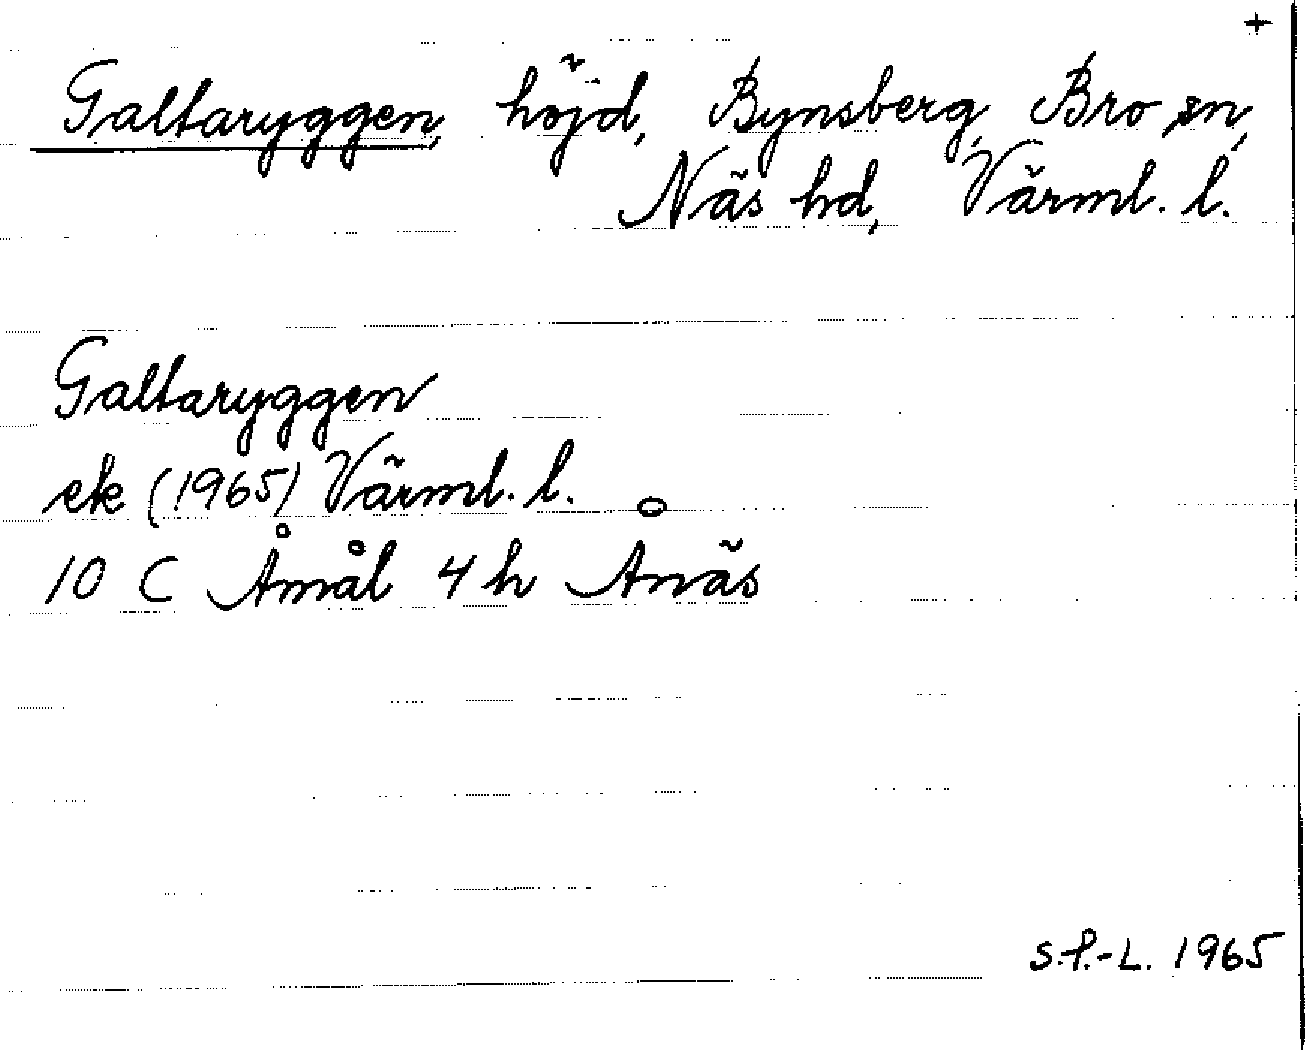 +
Galtaryggen, höjd, Bynsberg, Bro sn,
Näs hd, Värml. l.
Galtaryggen
ek (1965) Värml. l.
10 C Åmål 4 h Ånäs
S.P.-L. 1965